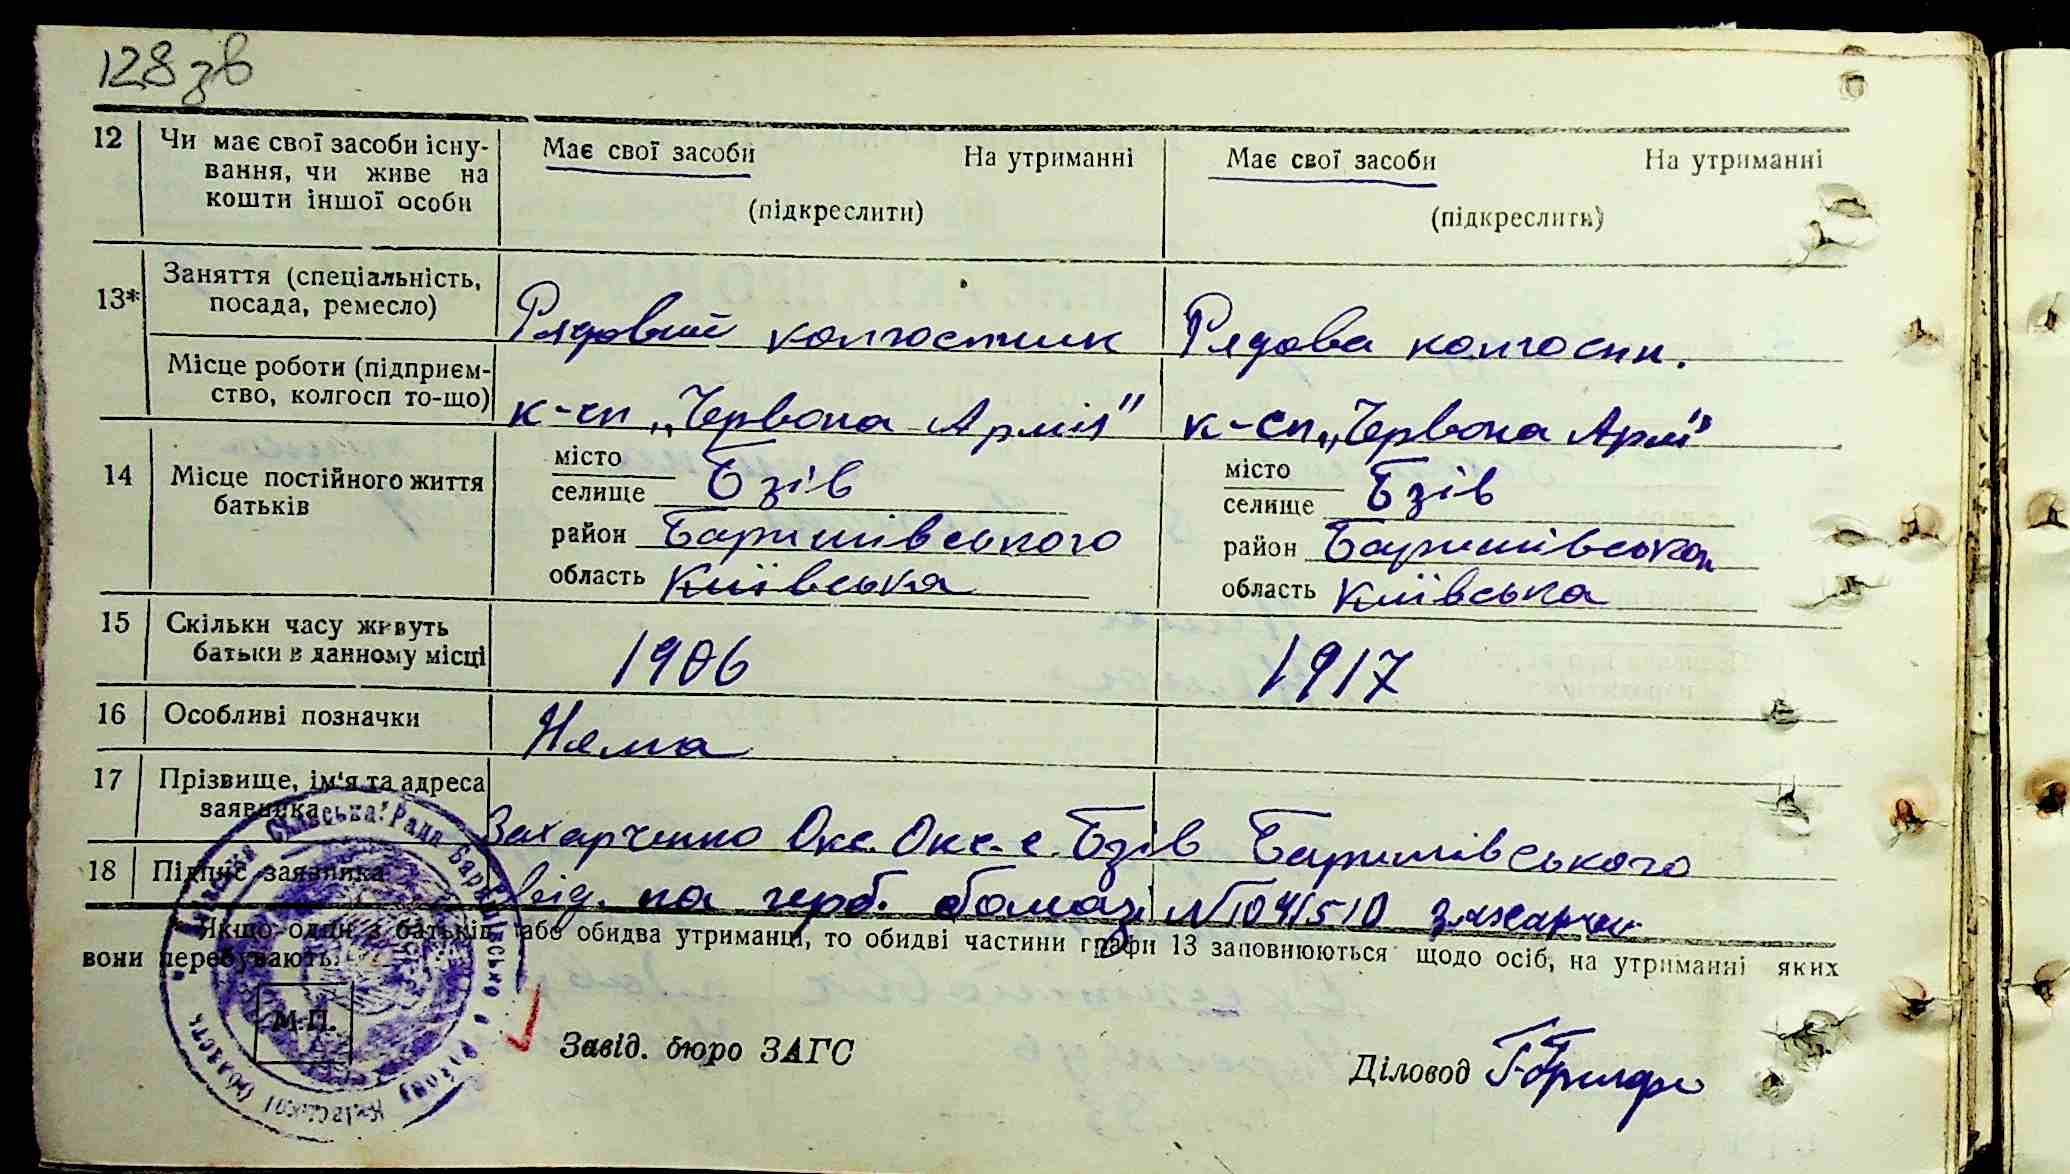 128 зв
12 Чи має свої засоби існу-
вання, чи живе на
кошти іншої особи
Має свої засоби На утриманні
(підкреслити)
Має свої засоби На утриманні
(підкреслить)
13* Заняття (спеціальність,
посада, ремесло)
Рядовий колгоспник
Рядова колгоспн.
Місце роботи (підприєм-
ство, колгосп то-що)
к-сп „Червона Армія"
к-сп „Червона Армія"
14 Місце постійного життя
батьків
місто
селище Бзів
район Баришівського
область Київська
місто
селище Бзів
район Баришівська
область Київська
15 Скільки часу живуть
батьки в данному місці
1906
1917
16 Особливі позначки
Нема
17 Прізвище, ім'я та адреса
заявника
Захарченко Окс. Окс. с. Бзів Баришівського
18 Підпис заявника
на герб. бомазі №1041510
Якщо один з батьків, або обидва утриманці, то обидві частини графи 13 заповнюються щодо осіб, на утриманні яких
вони перебувають.
М.П.
Завід. бюро ЗАГС
Діловод